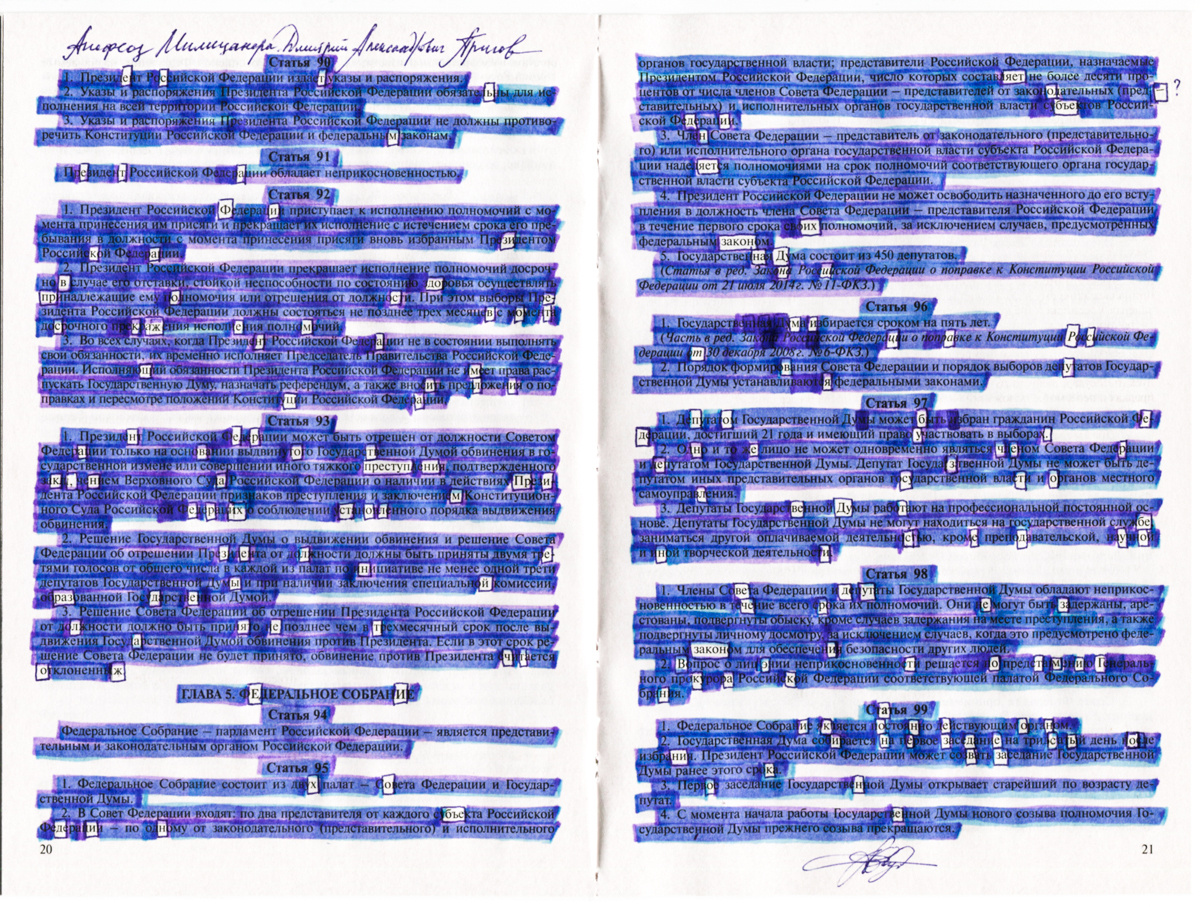 Апофеоз Милицанера. Дмитрий Александрович Пригов
Статья 90
1. Президент Российской Федерации издает указы и распоряжения.
2. Указы и распоряжения Президента Российской Федерации обязательны для ис-
полнения на всей территории Российской Федерации.
3. Указы и распоряжения Президента Российской Федерации не должны противо-
речить Конституции Российской Федерации и федеральным законам.
Статья 91
Президент Российской Федерации обладает неприкосновенностью.
Статья 92
1. Президент Российской Федерации приступает к исполнению полномочий с мо-
мента принесения им присяги и прекращает их исполнение с истечением срока его пре-
бывания в должности с момента принесения присяги вновь избранным Президентом
Российской Федерации.
2. Президент Российской Федерации прекращает исполнение полномочий досроч-
но в случае его отставки, стойкой неспособности по состоянию здоровья осуществлять
принадлежащие ему полномочия или отрешения от должности. При этом выборы Пре-
зидента Российской Федерации должны состояться не позднее трех месяцев с момента
досрочного прекращения исполнения полномочий.
3. Во всех случаях, когда Президент Российской Федерации не в состоянии выполнять
свои обязанности, их временно исполняет Председатель Правительства Российской Феде-
рации. Исполняющий обязанности Президента Российской Федерации не имеет права рас-
пускать Государственную Думу, назначать референдум, а также вносить предложения о по-
правках и пересмотре положений Конституции Российской Федерации.
Статья 93
1. Президент Российской Федерации может быть отрешен от должности Советом
Федерации только на основании выдвинутого Государственной Думой обвинения в го-
сударственной измене или совершении иного тяжкого преступления, подтвержденного
заключением Верховного Суда Российской Федерации о наличии в действиях Прези-
дента Российской Федерации признаков преступления и заключением Конституцион-
ного Суда Российской Федерации о соблюдении установленного порядка выдвижения
обвинения.
2. Решение Государственной Думы о выдвижении обвинения и решение Совета
Федерации об отрешении Президента от должности должны быть приняты двумя тре-
тями голосов от общего числа в каждой из палат по инициативе не менее одной трети
депутатов Государственной Думы и при наличии заключения специальной комиссии,
образованной Государственной Думой.
3. Решение Совета Федерации об отрешении Президента Российской Федерации
от должности должно быть принято не позднее чем в трехмесячный срок после вы-
движения Государственной Думой обвинения против Президента. Если в этот срок ре-
шение Совета Федерации не будет принято, обвинение против Президента считается
отклоненным.
ГЛАВА 5. ФЕДЕРАЛЬНОЕ СОБРАНИЕ
Статья 94
Федеральное Собрание – парламент Российской Федерации – является представи-
тельным и законодательным органом Российской Федерации.
Статья 95
1. Федеральное Собрание состоит из двух палат – Совета Федерации и Государ-
ственной Думы.
2. В Совет Федерации входят: по два представителя от каждого субъекта Российской
Федерации – по одному от законодательного (представительного) и исполнительного
20
органов государственной власти; представители Российской Федерации, назначаемые
Президентом Российской Федерации, число которых составляет не более десяти про-
центов от числа членов Совета Федерации – представителей от законодательных (пред- ?
ставительных) и исполнительных органов государственной власти субъектов Россий-
ской Федерации.
3. Член Совета Федерации – представитель от законодательного (представительно-
го) или исполнительного органа государственной власти субъекта Российской Федера-
ции наделяется полномочиями на срок полномочий соответствующего органа государ-
ственной власти субъекта Российской Федерации.
4. Президент Российской Федерации не может освободить назначенного до его всту-
пления в должность члена Совета Федерации – представителя Российской Федерации
в течение первого срока своих полномочий, за исключением случаев, предусмотренных
федеральным законом.
5. Государственная Дума состоит из 450 депутатов.
(Статья в ред. Закона Российской Федерации о поправке к Конституции Российской
Федерации от 21 июля 2014г. № 11-ФКЗ.)
Статья 96
1. Государственная Дума избирается сроком на пять лет.
(Часть в ред. Закона Российской Федерации о поправке к Конституции Российской Фе-
дерации от 30 декабря 2008г. № 6-ФКЗ.)
2. Порядок формирования Совета Федерации и порядок выборов депутатов Государ-
ственной Думы устанавливаются федеральными законами.
Статья 97
1. Депутатом Государственной Думы может быть избран гражданин Российской Фе-
дерации, достигший 21 года и имеющий право участвовать в выборах.
2. Одно и то же лицо не может одновременно являться членом Совета Федерации
и депутатом Государственной Думы. Депутат Государственной Думы не может быть де-
путатом иных представительных органов государственной власти и органов местного
самоуправления.
3. Депутаты Государственной Думы работают на профессиональной постоянной ос-
нове. Депутаты Государственной Думы не могут находиться на государственной службе,
заниматься другой оплачиваемой деятельностью, кроме преподавательской, научной
и иной творческой деятельности.
Статья 98
1. Члены Совета Федерации и депутаты Государственной Думы обладают неприкос-
новенностью в течение всего срока их полномочий. Они не могут быть задержаны, аре-
стованы, подвергнуты обыску, кроме случаев задержания на месте преступления, а также
подвергнуты личному досмотру, за исключением случаев, когда это предусмотрено феде-
ральным законом для обеспечения безопасности других людей.
2. Вопрос о лишении неприкосновенности решается по представлению Генераль-
ного прокурора Российской Федерации соответствующей палатой Федерального Со-
брания.
Статья 99
1. Федеральное Собрание является постоянно действующим органом.
2. Государственная Дума собирается на первое заседание на тридцатый день после
избрания. Президент Российской Федерации может созвать заседание Государственной
Думы ранее этого срока.
3. Первое заседание Государственной Думы открывает старейший по возрасту де-
путат.
4. С момента начала работы Государственной Думы нового созыва полномочия Го-
сударственной Думы прежнего созыва прекращаются.
21